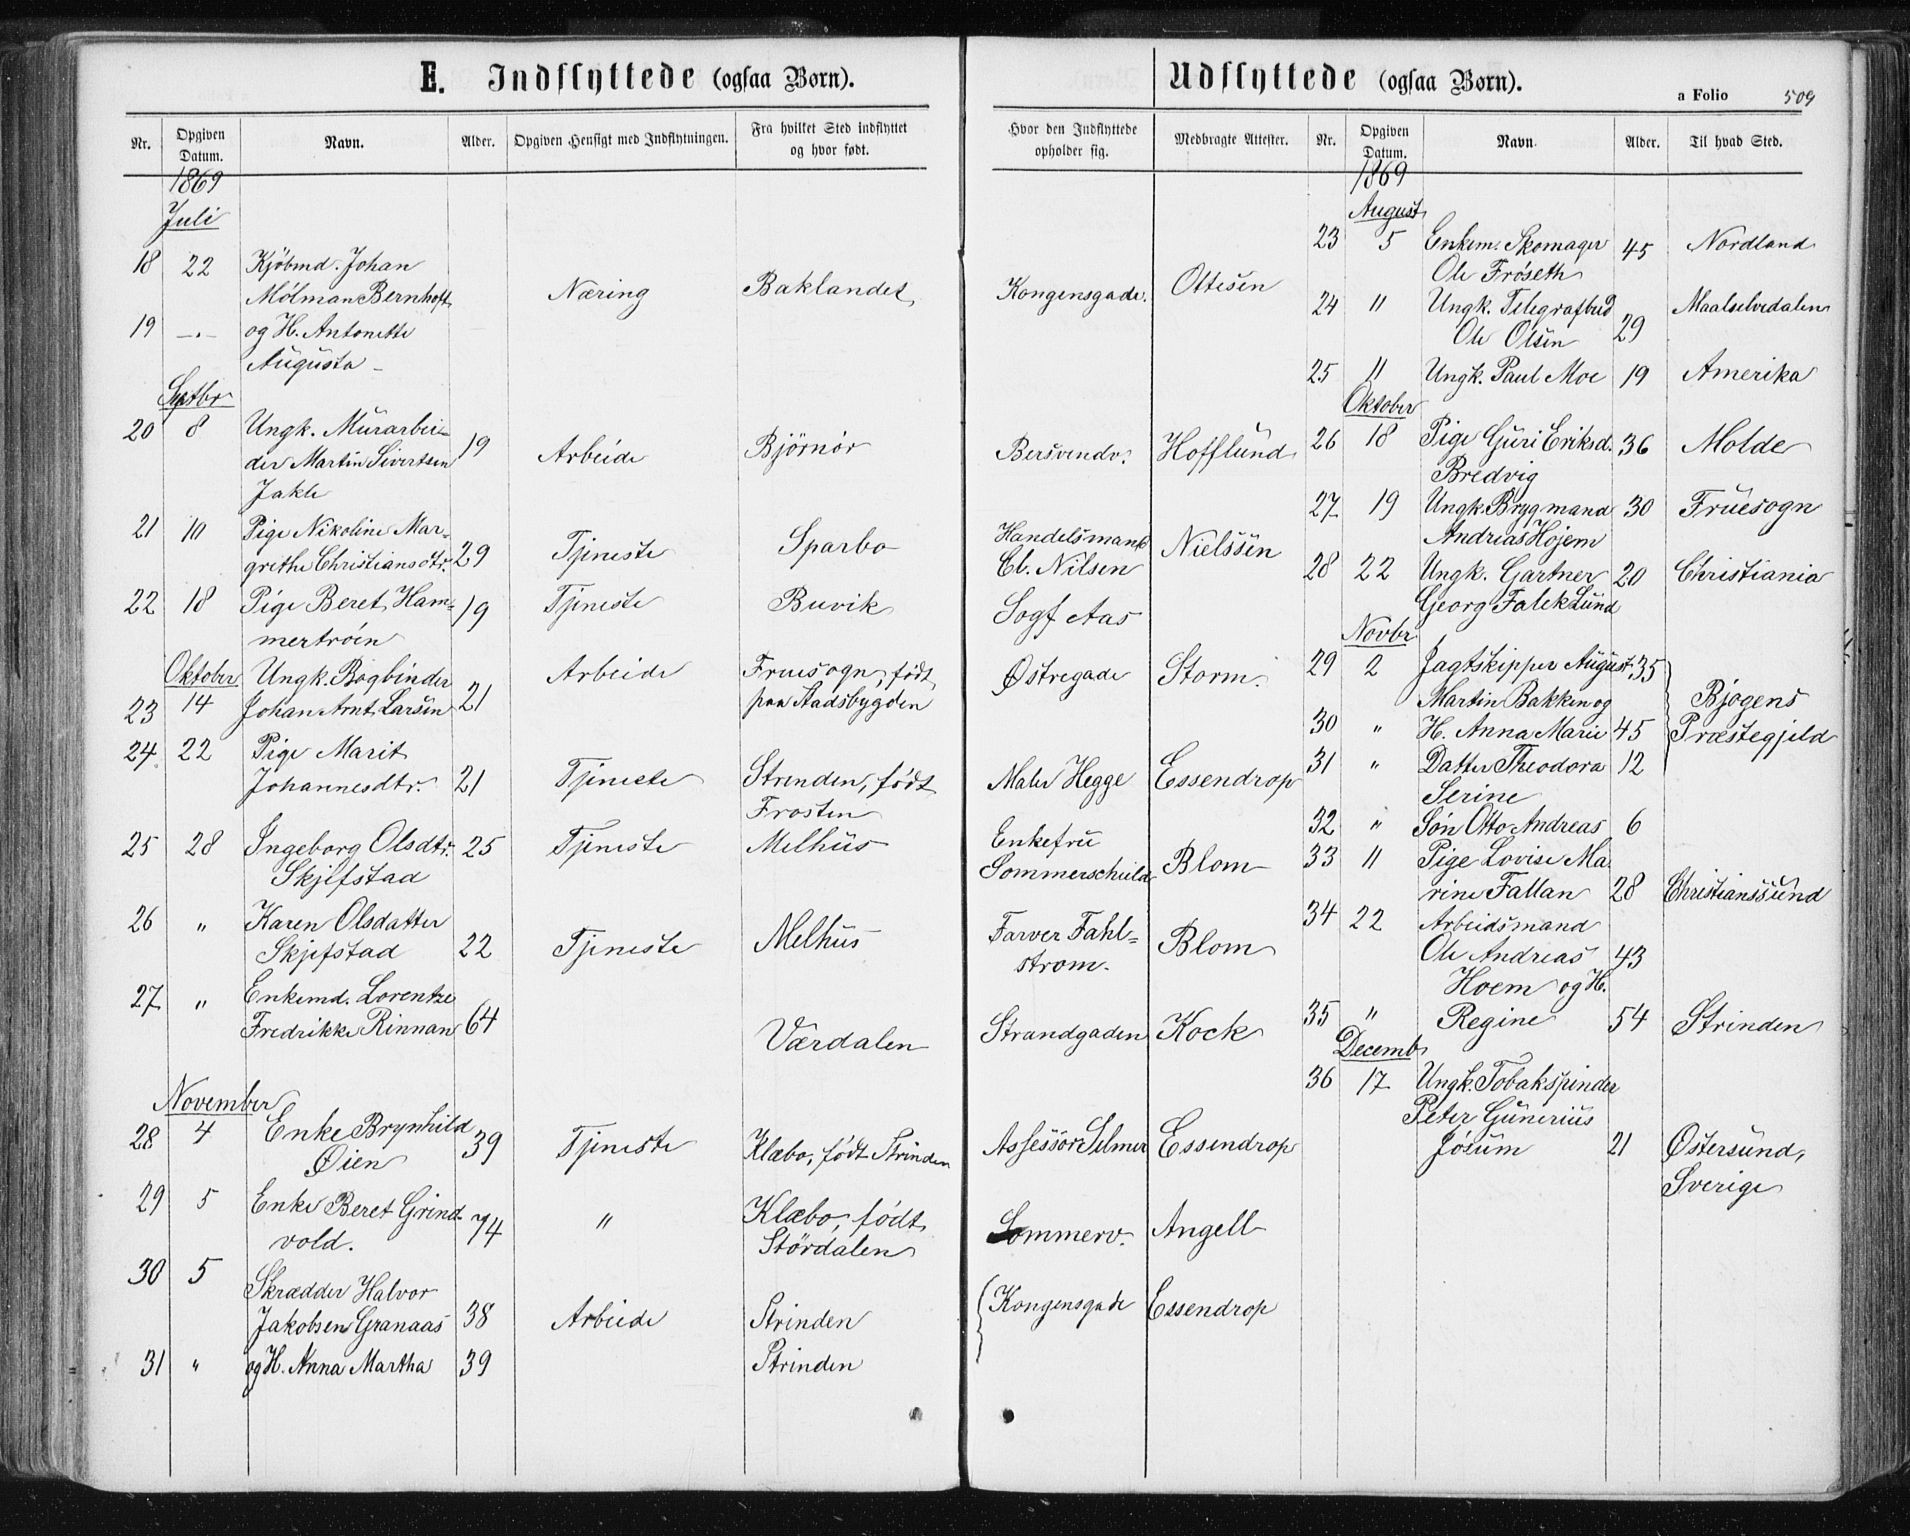 E. Indflyttede (ogsaa Børn).
Nr. Opgiven Datum. Navn. Alder. Opgiven Hensigt med Indflytningen. Fra hvilket Sted indflyttet og hvor født. Hvor den Indflyttede opholder sig. Medbragte Attester.
1869
Juli
18 22 Kjöbmd. Johan
Mólman Bernhoft Næring Baklandet Kongensgade. Ottesen
19 —.— og H. Antonette
Augusta –
Septbr
20 8 Ungk. Murarbei-
der Martin Sivertsen 19 Arbeide Bjørnør Bersvendv. Hofflund
Jakle
21 10 Pige Nikoline Mar-
grethe Christiansdtr. 29 Tjeneste Sparbo Handelsmand Nielssen
Cl. Nilsen
22 18 Pige Beret Ham- 19 Tjeneste Buvik Sogf Aas
mertrøen
Oktober Ungk. Bogbinder Arbeide Fruesogn, født Østregade Storm.
23 14 Johan Arnt Larsen 21 paa Stadsbygden
24 22 Pige Marit
Johannesdtr. 21 Tjeneste Strinden, født Maler Hegge Essendrop
Frosten
25 28 Ingeborg Olsdtr. 25 Tjeneste Melhus Enkefru
Skjefstad Sommerschield Blom
26 " Karen Olsdatter
Skjefstad 22 Tjeneste Melhus Farver Fahl-
strøm. Blom
27 " Enkemd. Lorentze
Fredrikke Rinnan 64 Værdalen Strandgaden Kock
November
28 4 Enke Brynhild 39 Tjeneste Klæbo, født Strinden Assessor Selmer Essendrop
Øien
29 5 Enke Beret Grind- 74 " Klæbo, født Sommerv. Angell
vold. Stördalen
30 5 Skrædder Halvor
Jakobsen Granaas 38 Arbeide Strinden Kongensgade Essendrop
31 " og H. Anna Martha 39 Strinden
Udflyttede (ogsaa Børn).
a Folio 509
Nr. Opgiven Datum. Navn. Alder. Til hvad Sted.
1869
August
23 5 Enkem. Skomager 45 Nordland
Ole Frøseth
24 11 Ungk. Telegrafbud Maalselvedalen
Ole Olsen 29
25 11 Ungk. Paul Moe 19 Amerika
Oktober
26 18 Pige Guri Eriksd. 36 Molde
Bredvig
27 19 Ungk. Brygmand 30 Fruesogn
Andrias Højem
28 22 Ungk. Gartner 20 Christiania
Georg Falck Lund
Novbr
29 2 Jagtskipper August 35
Martin Bakken og Bjøgens
30 " H. Anna Marie 45 Præstegjeld
31 " Datter Theodora 12
Serine
32 " Søn Otto Andreas 6
33 11 Pige Lovise Ma
rine Fallan 28 Christianssund
34 22 Arbeidsmand
Ole Andreas 43
Hoem og H.
35 " Regine 54 Strinden
Decemb
36 17 Ungk. Tobakspinder
Peter Gunerius
Jøsum 21 Østersund,
Sverige